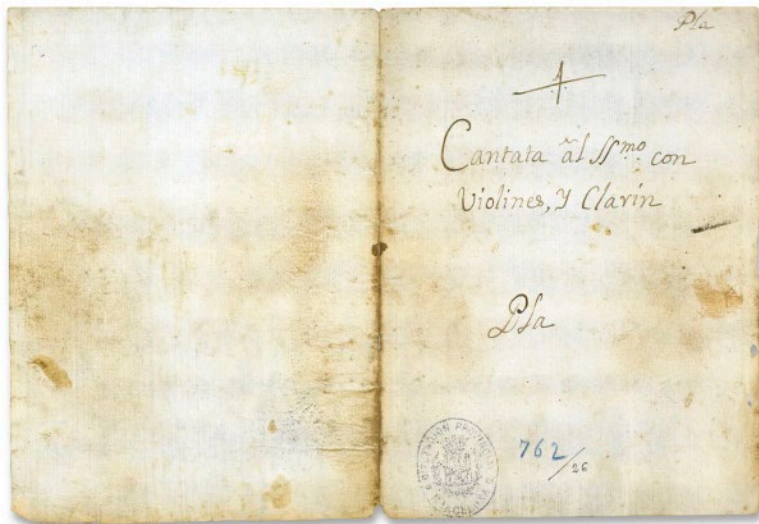 Pla
Cantata âl SS.mo con
Violines, y Clarín
Pla
DIPUTACIÓN PROVINCIAL
BARCELONA
762/26